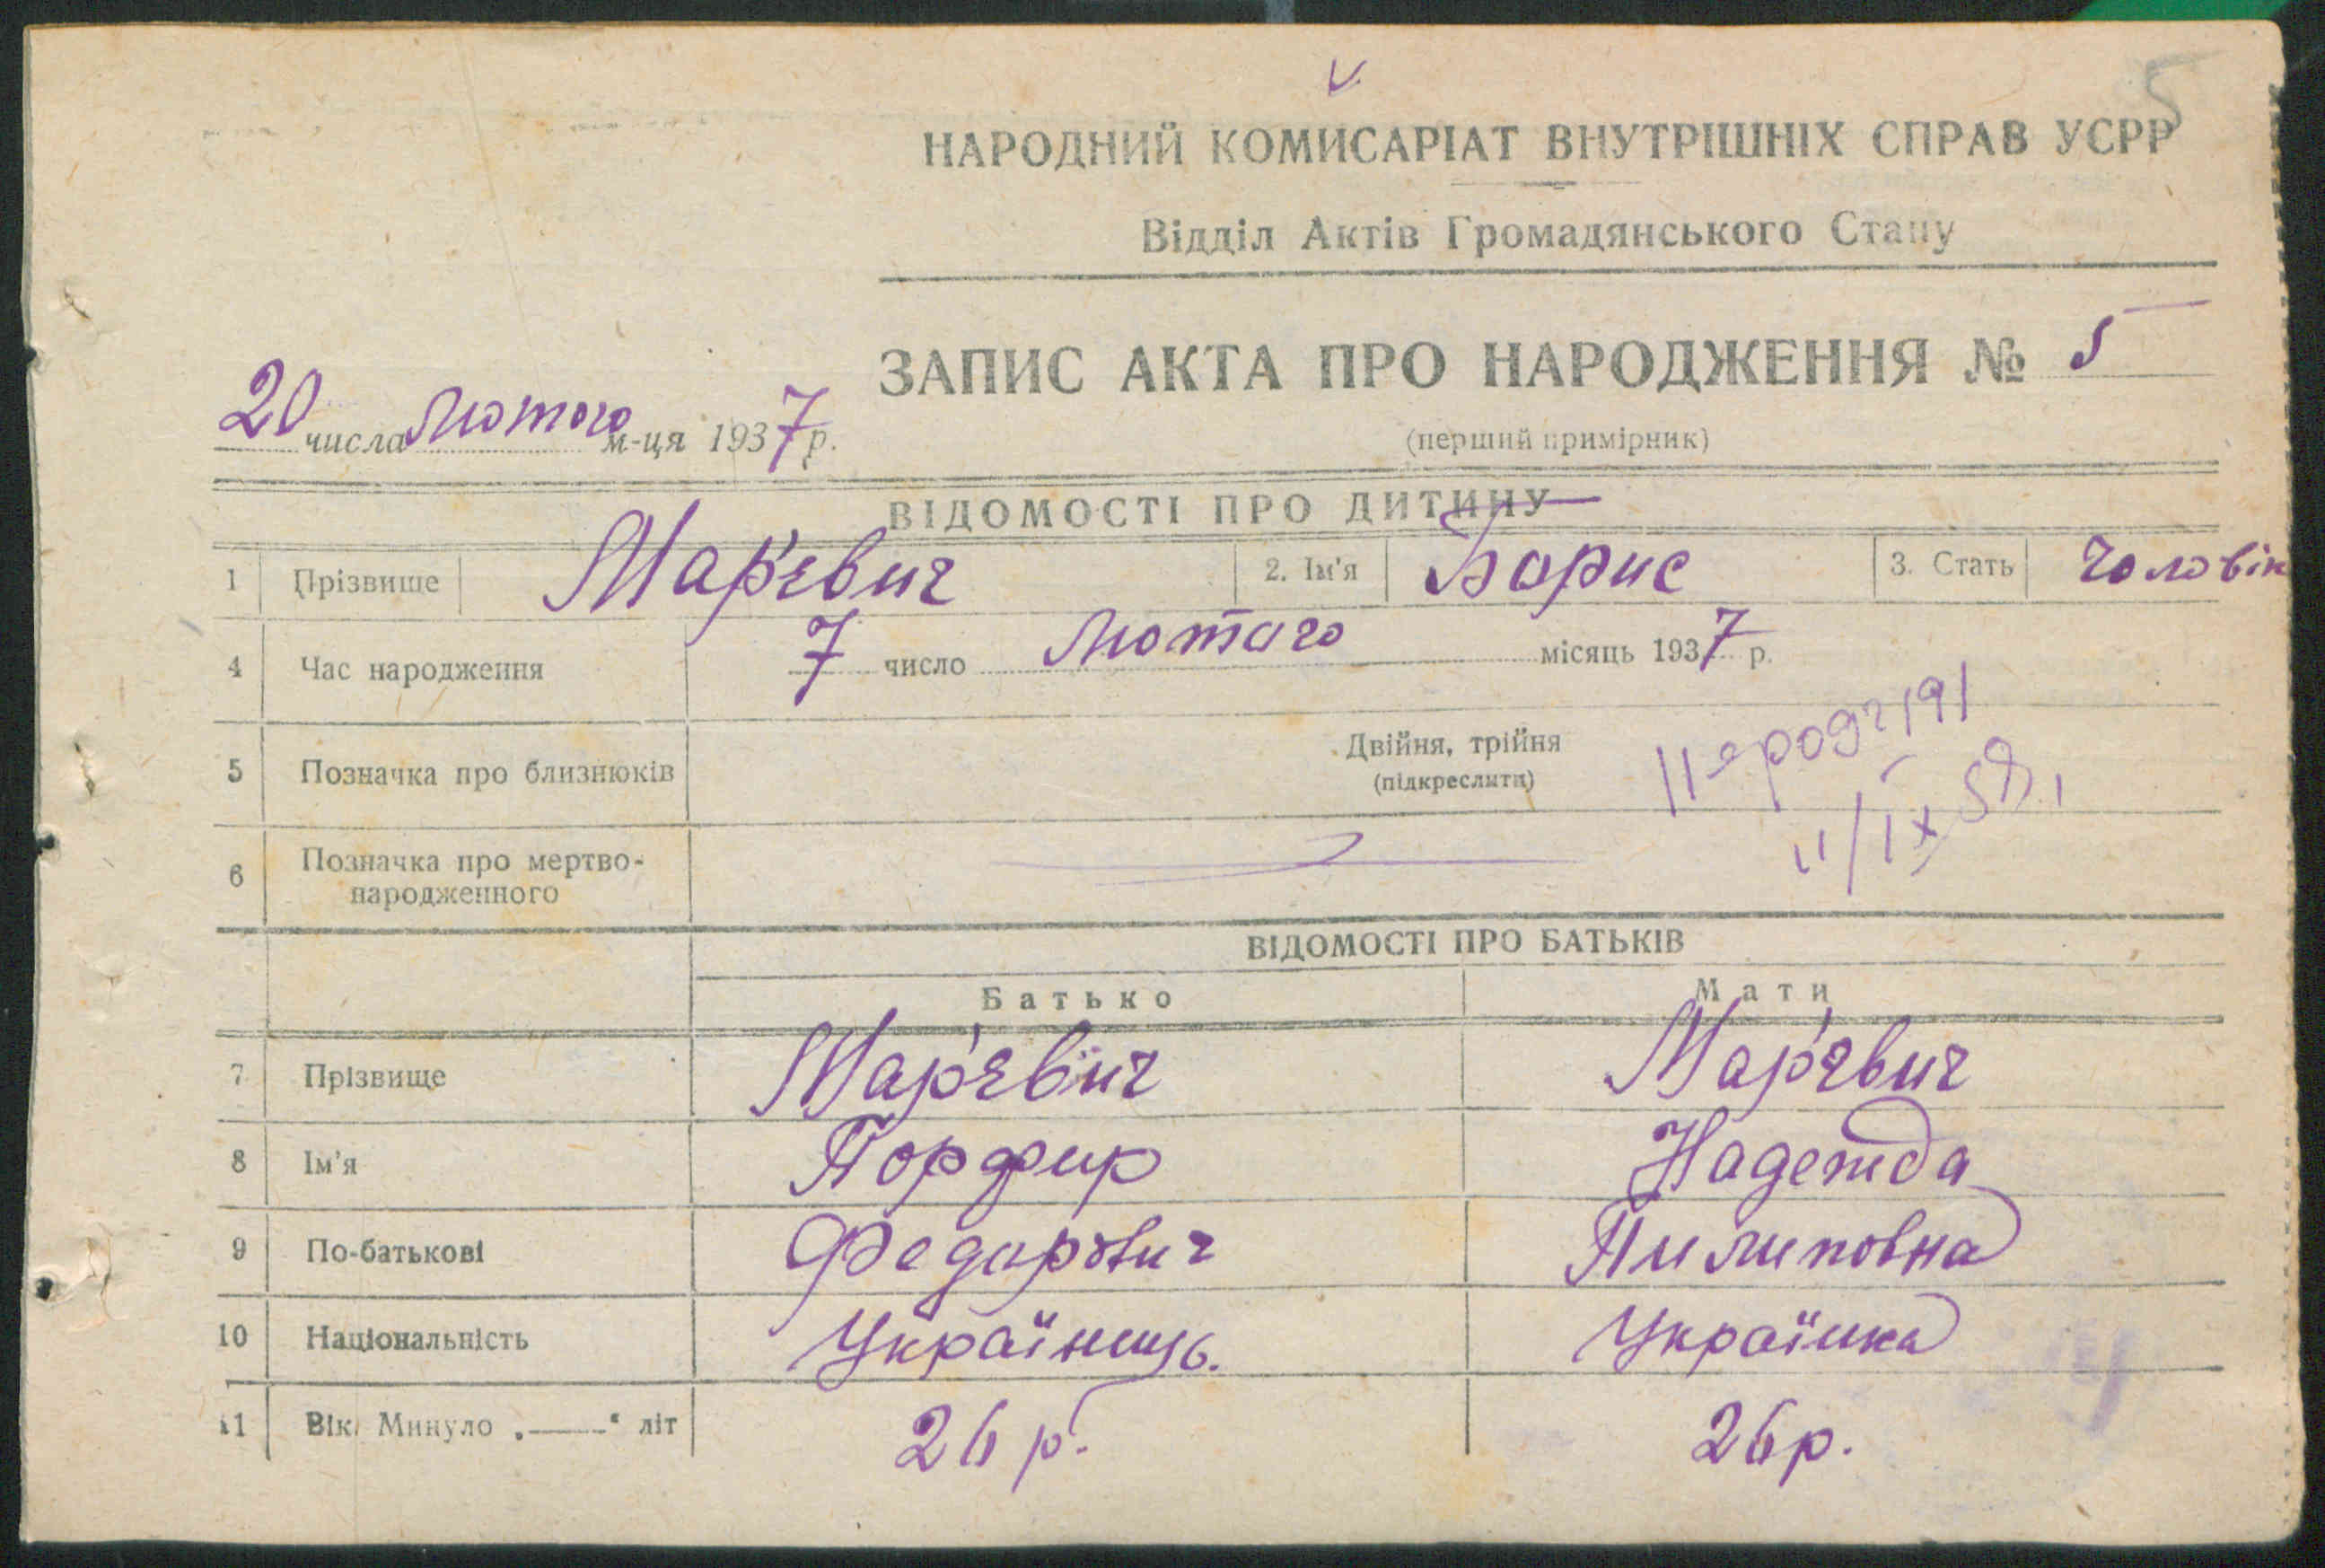 5
НАРОДНИЙ КОМИСАРІАТ ВНУТРІШНІХ СПРАВ УСРР
Відділ Актів Громадянського Стану
ЗАПИС АКТА ПРО НАРОДЖЕННЯ № 5
20 числа Лютого м-ця 1937 р.
(перший примірник)
ВІДОМОСТІ ПРО ДИТИНУ
1 Прізвище Мар'євич 2. Ім'я Борис 3. Стать Чоловік
4 Час народження 7 число Лютого місяць 1937 р.
5 Позначка про близнюків Двійня, трійня
(підкреслити)
11/IX 58
6 Позначка про мертво-
народженного
ВІДОМОСТІ ПРО БАТЬКІВ
Батько Мати
7 Прізвище Мар'євич Мар'євич
8 Ім'я Порфир Надежда
9 По-батькові Федорович Пилиповна
10 Національність Українець. Українка
11 Вік. Минуло „——“ літ 26 р. 26 р.